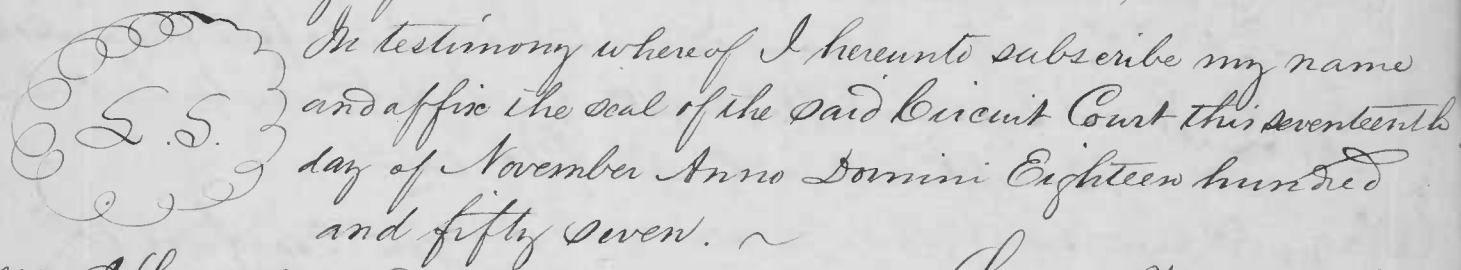 In testimony whereof I hereunto subscribe my name
L.S. and affix the seal of the said Circuit Court this seventeenth
day of November Anno Domini Eighteen hundred
and fifty seven. ~